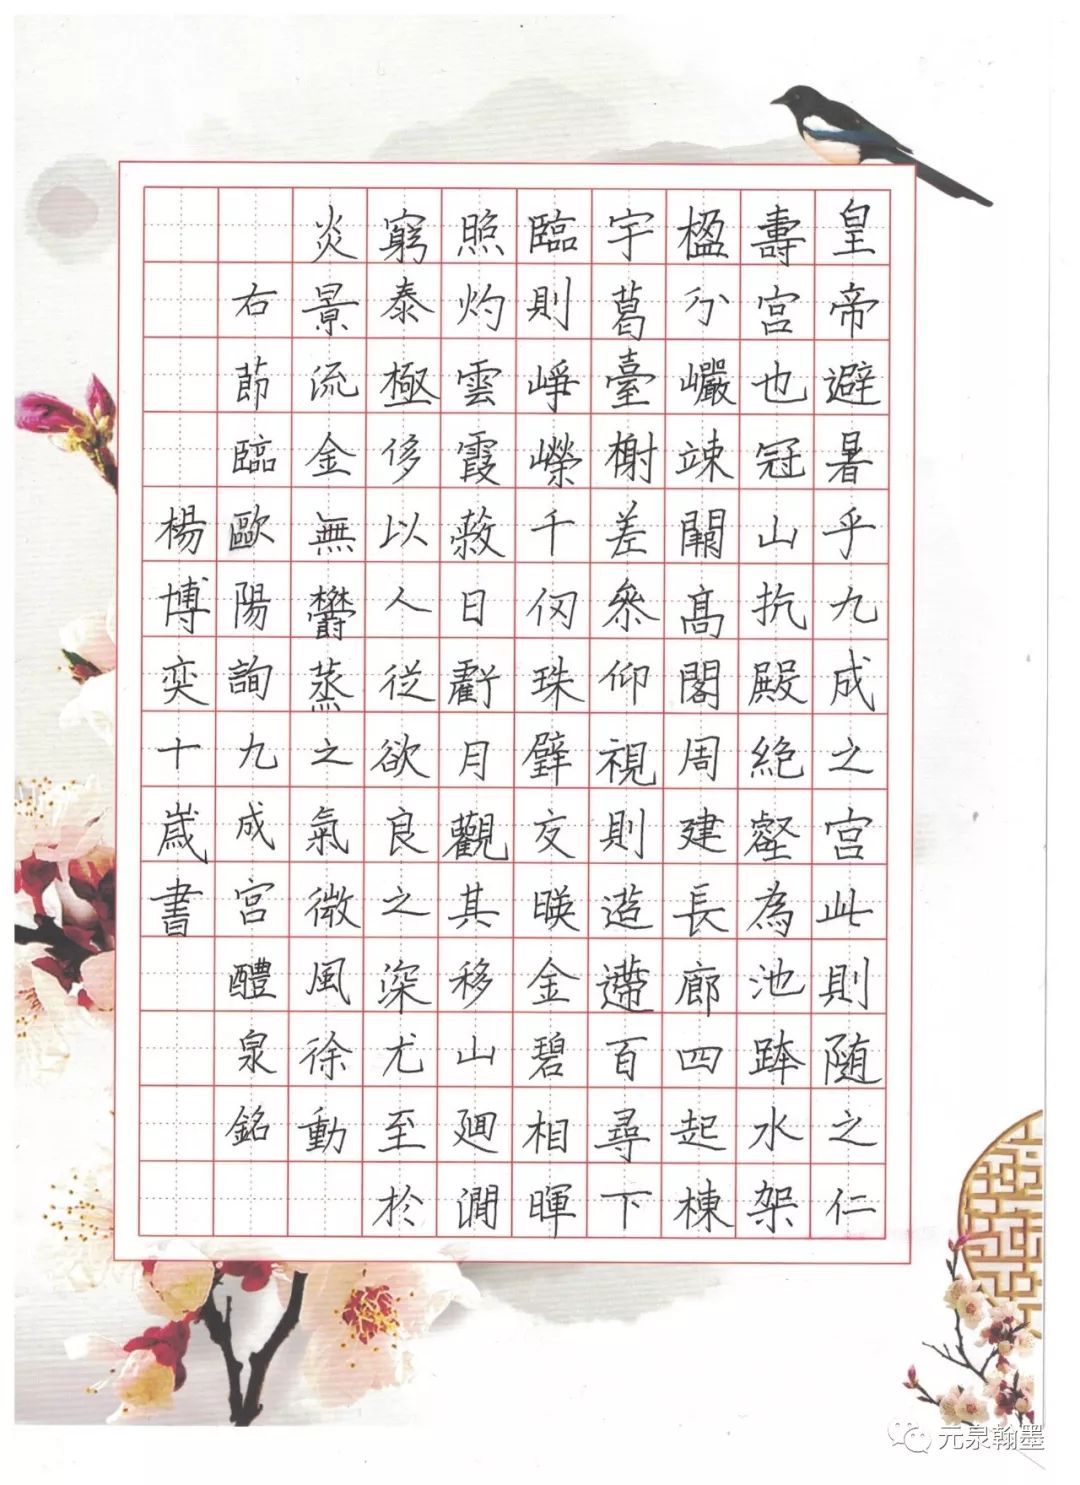 皇帝避暑乎九成之宫此則随之仁
壽宫也冠山抗殿絶壑為池跨水架
楹分巗竦闕高閣周建長廊四起棟
宇葛臺榭差叅仰視則迢遰百尋下
臨則崢嶸千仞珠璧交暎金碧相暉
照灼雲霞蔽日虧月觀其移山廻澗
窮泰極侈以人從欲良之深尤至於
炎景流金無欝蒸之氣微風徐動
右節臨歐陽詢九成宮醴泉銘
楊博奕十歲書
元泉翰墨